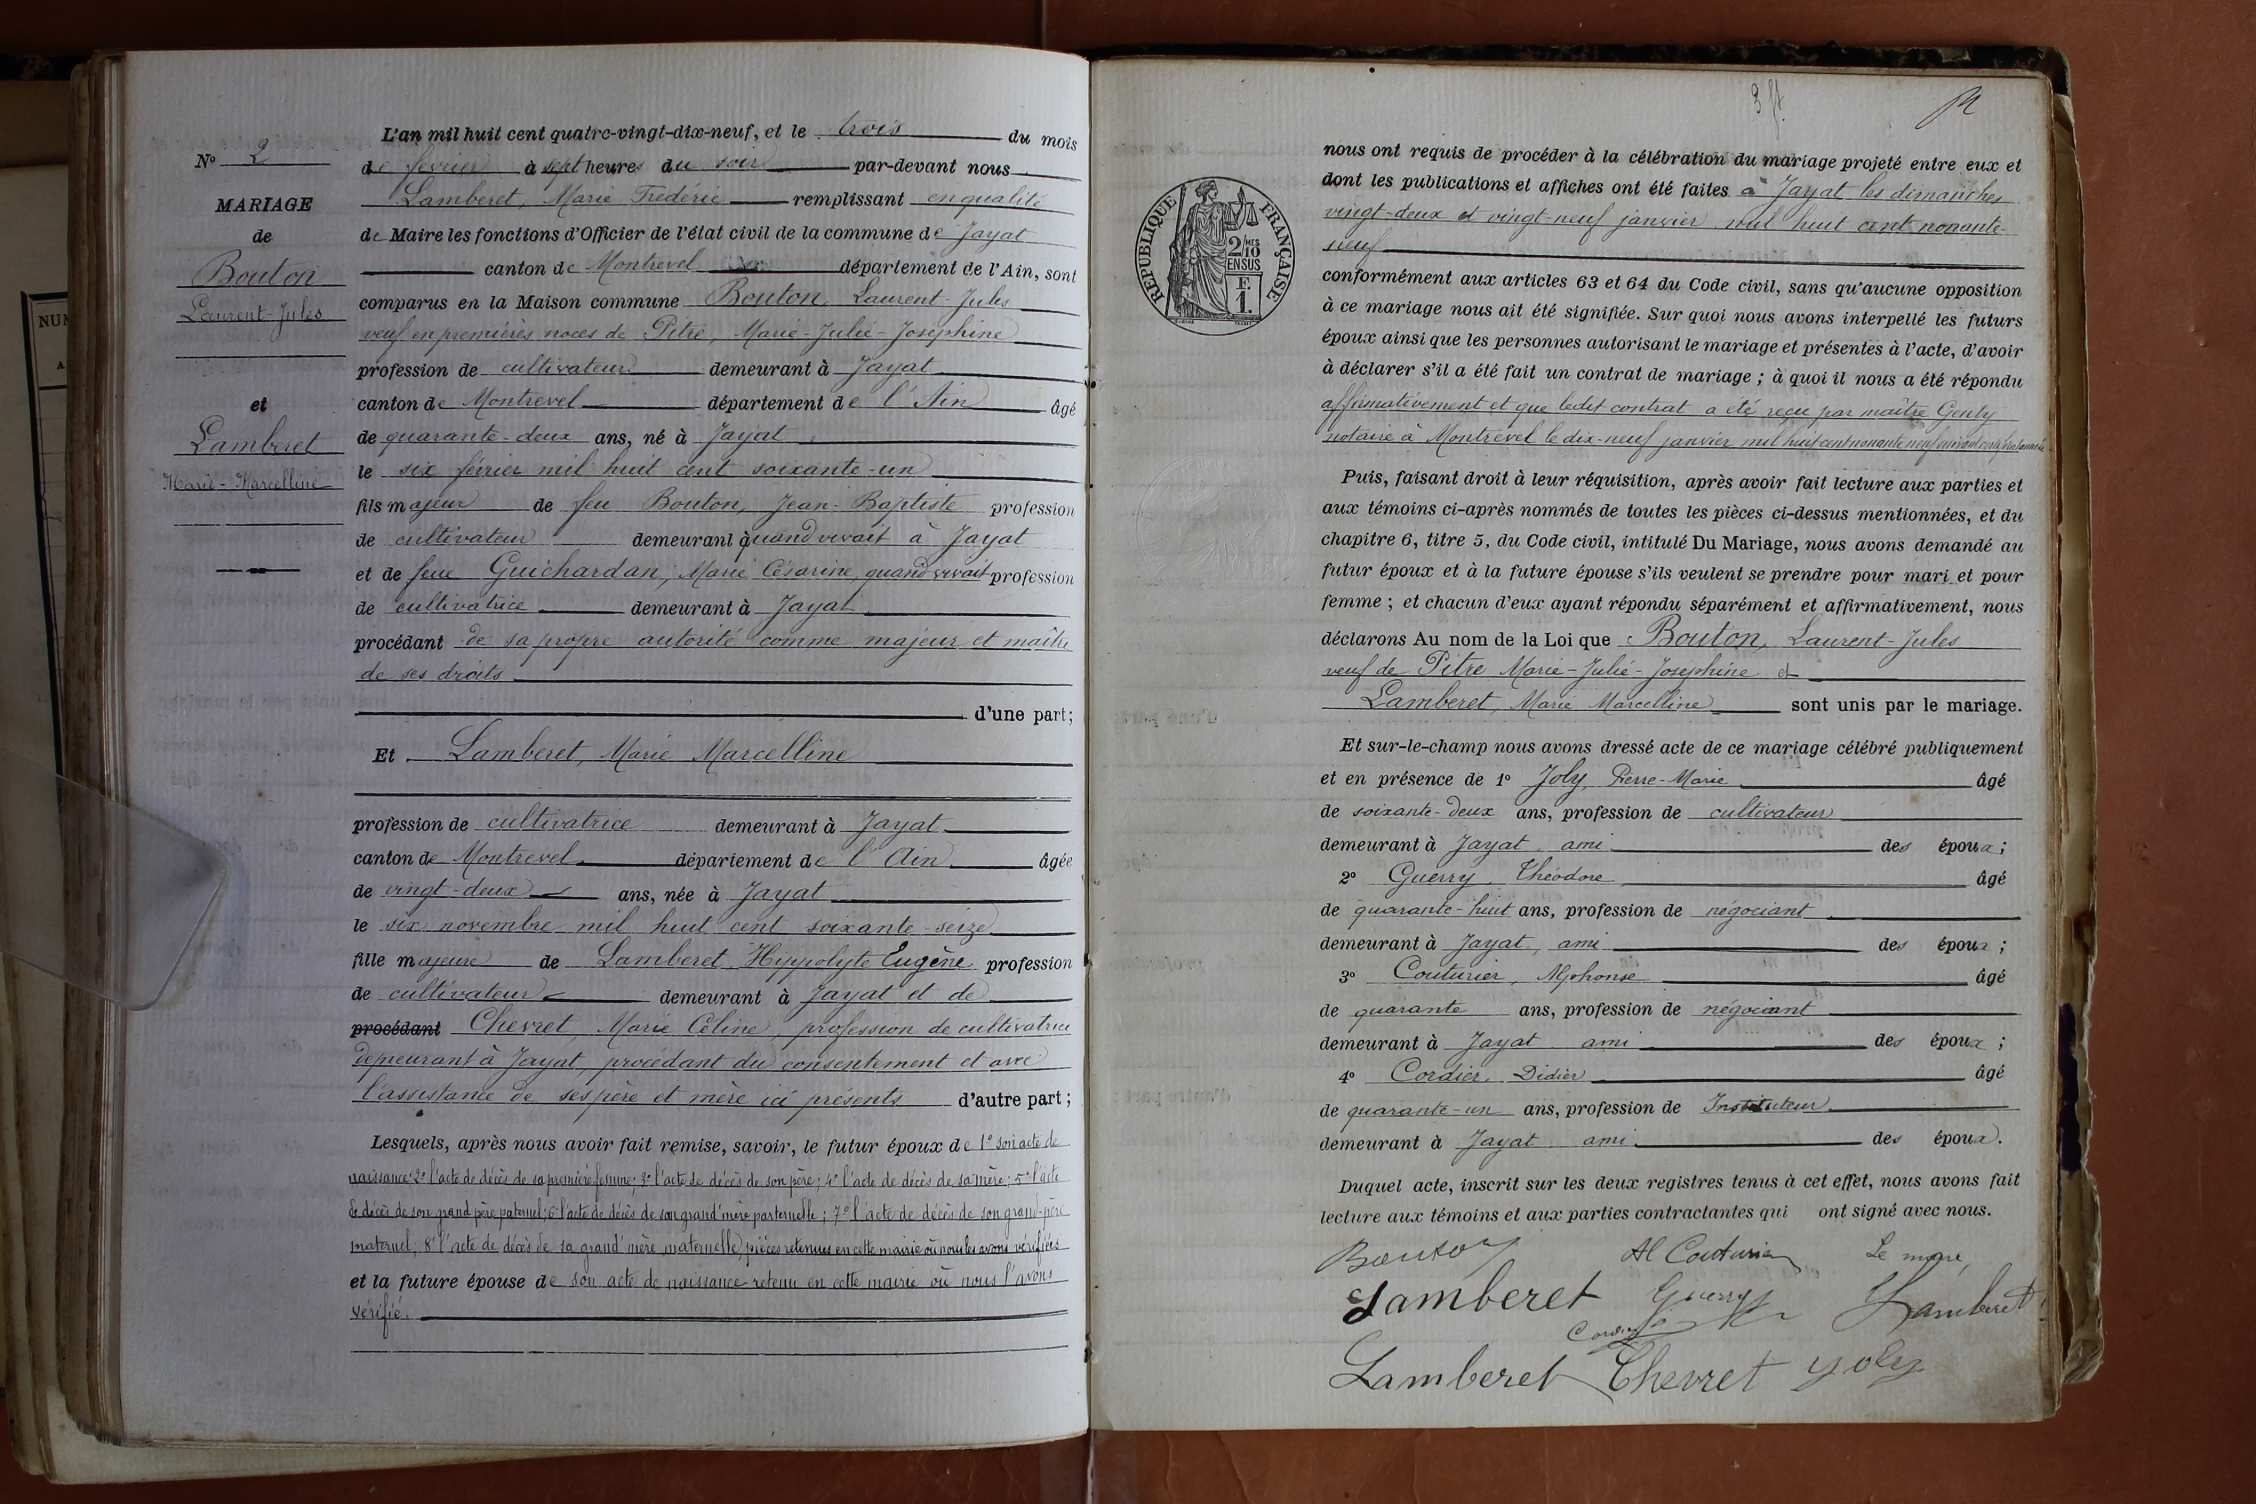 N° 2
MARIAGE
de
Bouton
Laurent-Jules
et
Lamberet
Marie-Marcelline
L'an mil huit cent quatre-vingt-dix-neuf, et le trois du mois
de février à sept heures du soir par-devant nous
Lamberet, Marie Frédéric remplissant en qualité
de Maire les fonctions d'Officier de l'état civil de la commune de Jayat
canton de Montrevel département de l'Ain, sont
comparus en la Maison commune Bouton, Laurent-Jules
veuf en premières noces de Pitre, Marie-Julie-Joséphine
profession de cultivateur demeurant à Jayat
canton de Montrevel département de l'Ain âgé
de quarante-deux ans, né à Jayat
le six février mil huit cent soixante-un
fils majeur de feu Bouton, Jean-Baptiste profession
de cultivateur demeurant quand vivait à Jayat
et de feue Guichardan, Marie Césarine, quand vivait profession
de cultivatrice demeurant à Jayat
procédant de sa propre autorité comme majeur et maître
de ses droits
d'une part;
Et Lamberet, Marie Marcelline
profession de cultivatrice demeurant à Jayat
canton de Montrevel département de l'Ain âgée
de vingt-deux ans, née à Jayat
le six novembre mil huit cent soixante-seize
fille majeure de Lamberet, Hyppolyte Eugène profession
de cultivateur demeurant à Jayat et de
procédant Chevret, Marie Céline, profession de cultivatrice
demeurant à Jayat, procédant du consentement et avec
l'assistance de ses père et mère ici présents d'autre part;
Lesquels, après nous avoir fait remise, savoir, le futur époux de 1° son acte de
naissance 2° l'acte de décès de sa première femme; 3° l'acte de décès de son père; 4° l'acte de décès de sa mère; 5° l'acte
de décès de son grand père paternel; 6° l'acte de décès de son grand'mère parternelle; 7° l'acte de décès de son grand-père
maternel; 8° l'acte de décès de sa grand'mère maternelle, pièces retenues en cette mairie où nous les avons vérifiées
et la future épouse de son acte de naissance retenu en cette mairie où nous l'avons
vérifié.
3 ff.
RÉPUBLIQUE FRANÇAISE
2/10 MES
EN SUS
F.
1.
nous ont requis de procéder à la célébration du mariage projeté entre eux et
dont les publications et affiches ont été faites à Jayat les dimanches
vingt-deux et vingt-neuf janvier mil huit cent nonante-
neuf
conformément aux articles 63 et 64 du Code civil, sans qu'aucune opposition
à ce mariage nous ait été signifiée. Sur quoi nous avons interpellé les futurs
époux ainsi que les personnes autorisant le mariage et présentes à l'acte, d'avoir
à déclarer s'il a été fait un contrat de mariage; à quoi il nous a été répondu
affirmativement et que ledit contrat a été reçu par maître Genly
notaire à Montrevel le dix-neuf janvier mil huit cent nonante neuf
Puis, faisant droit à leur réquisition, après avoir fait lecture aux parties et
aux témoins ci-après nommés de toutes les pièces ci-dessus mentionnées, et du
chapitre 6, titre 5, du Code civil, intitulé Du Mariage, nous avons demandé au
futur époux et à la future épouse s'ils veulent se prendre pour mari et pour
femme; et chacun d'eux ayant répondu séparément et affirmativement, nous
déclarons Au nom de la Loi que Bouton, Laurent-Jules
veuf de Pitre Marie-Julie-Joséphine et
Lamberet, Marie Marcelline sont unis par le mariage.
Et sur-le-champ nous avons dressé acte de ce mariage célébré publiquement
et en présence de 1° Joly, Pierre-Marie âgé
de soixante-deux ans, profession de cultivateur
demeurant à Jayat, ami des époux;
2° Guerry, Théodore âgé
de quarante-huit ans, profession de négociant
demeurant à Jayat, ami des époux;
3° Couturier, Alphonse âgé
de quarante ans, profession de négociant
demeurant à Jayat ami des époux;
4° Cordier, Didier âgé
de quarante-un ans, profession de Instituteur
demeurant à Jayat ami des époux.
Duquel acte, inscrit sur les deux registres tenus à cet effet, nous avons fait
lecture aux témoins et aux parties contractantes qui ont signé avec nous.
Bouton Al Couturier Le maire,
Lamberet Guerry Lamberet
Cordier
Lamberet Chevret Joly